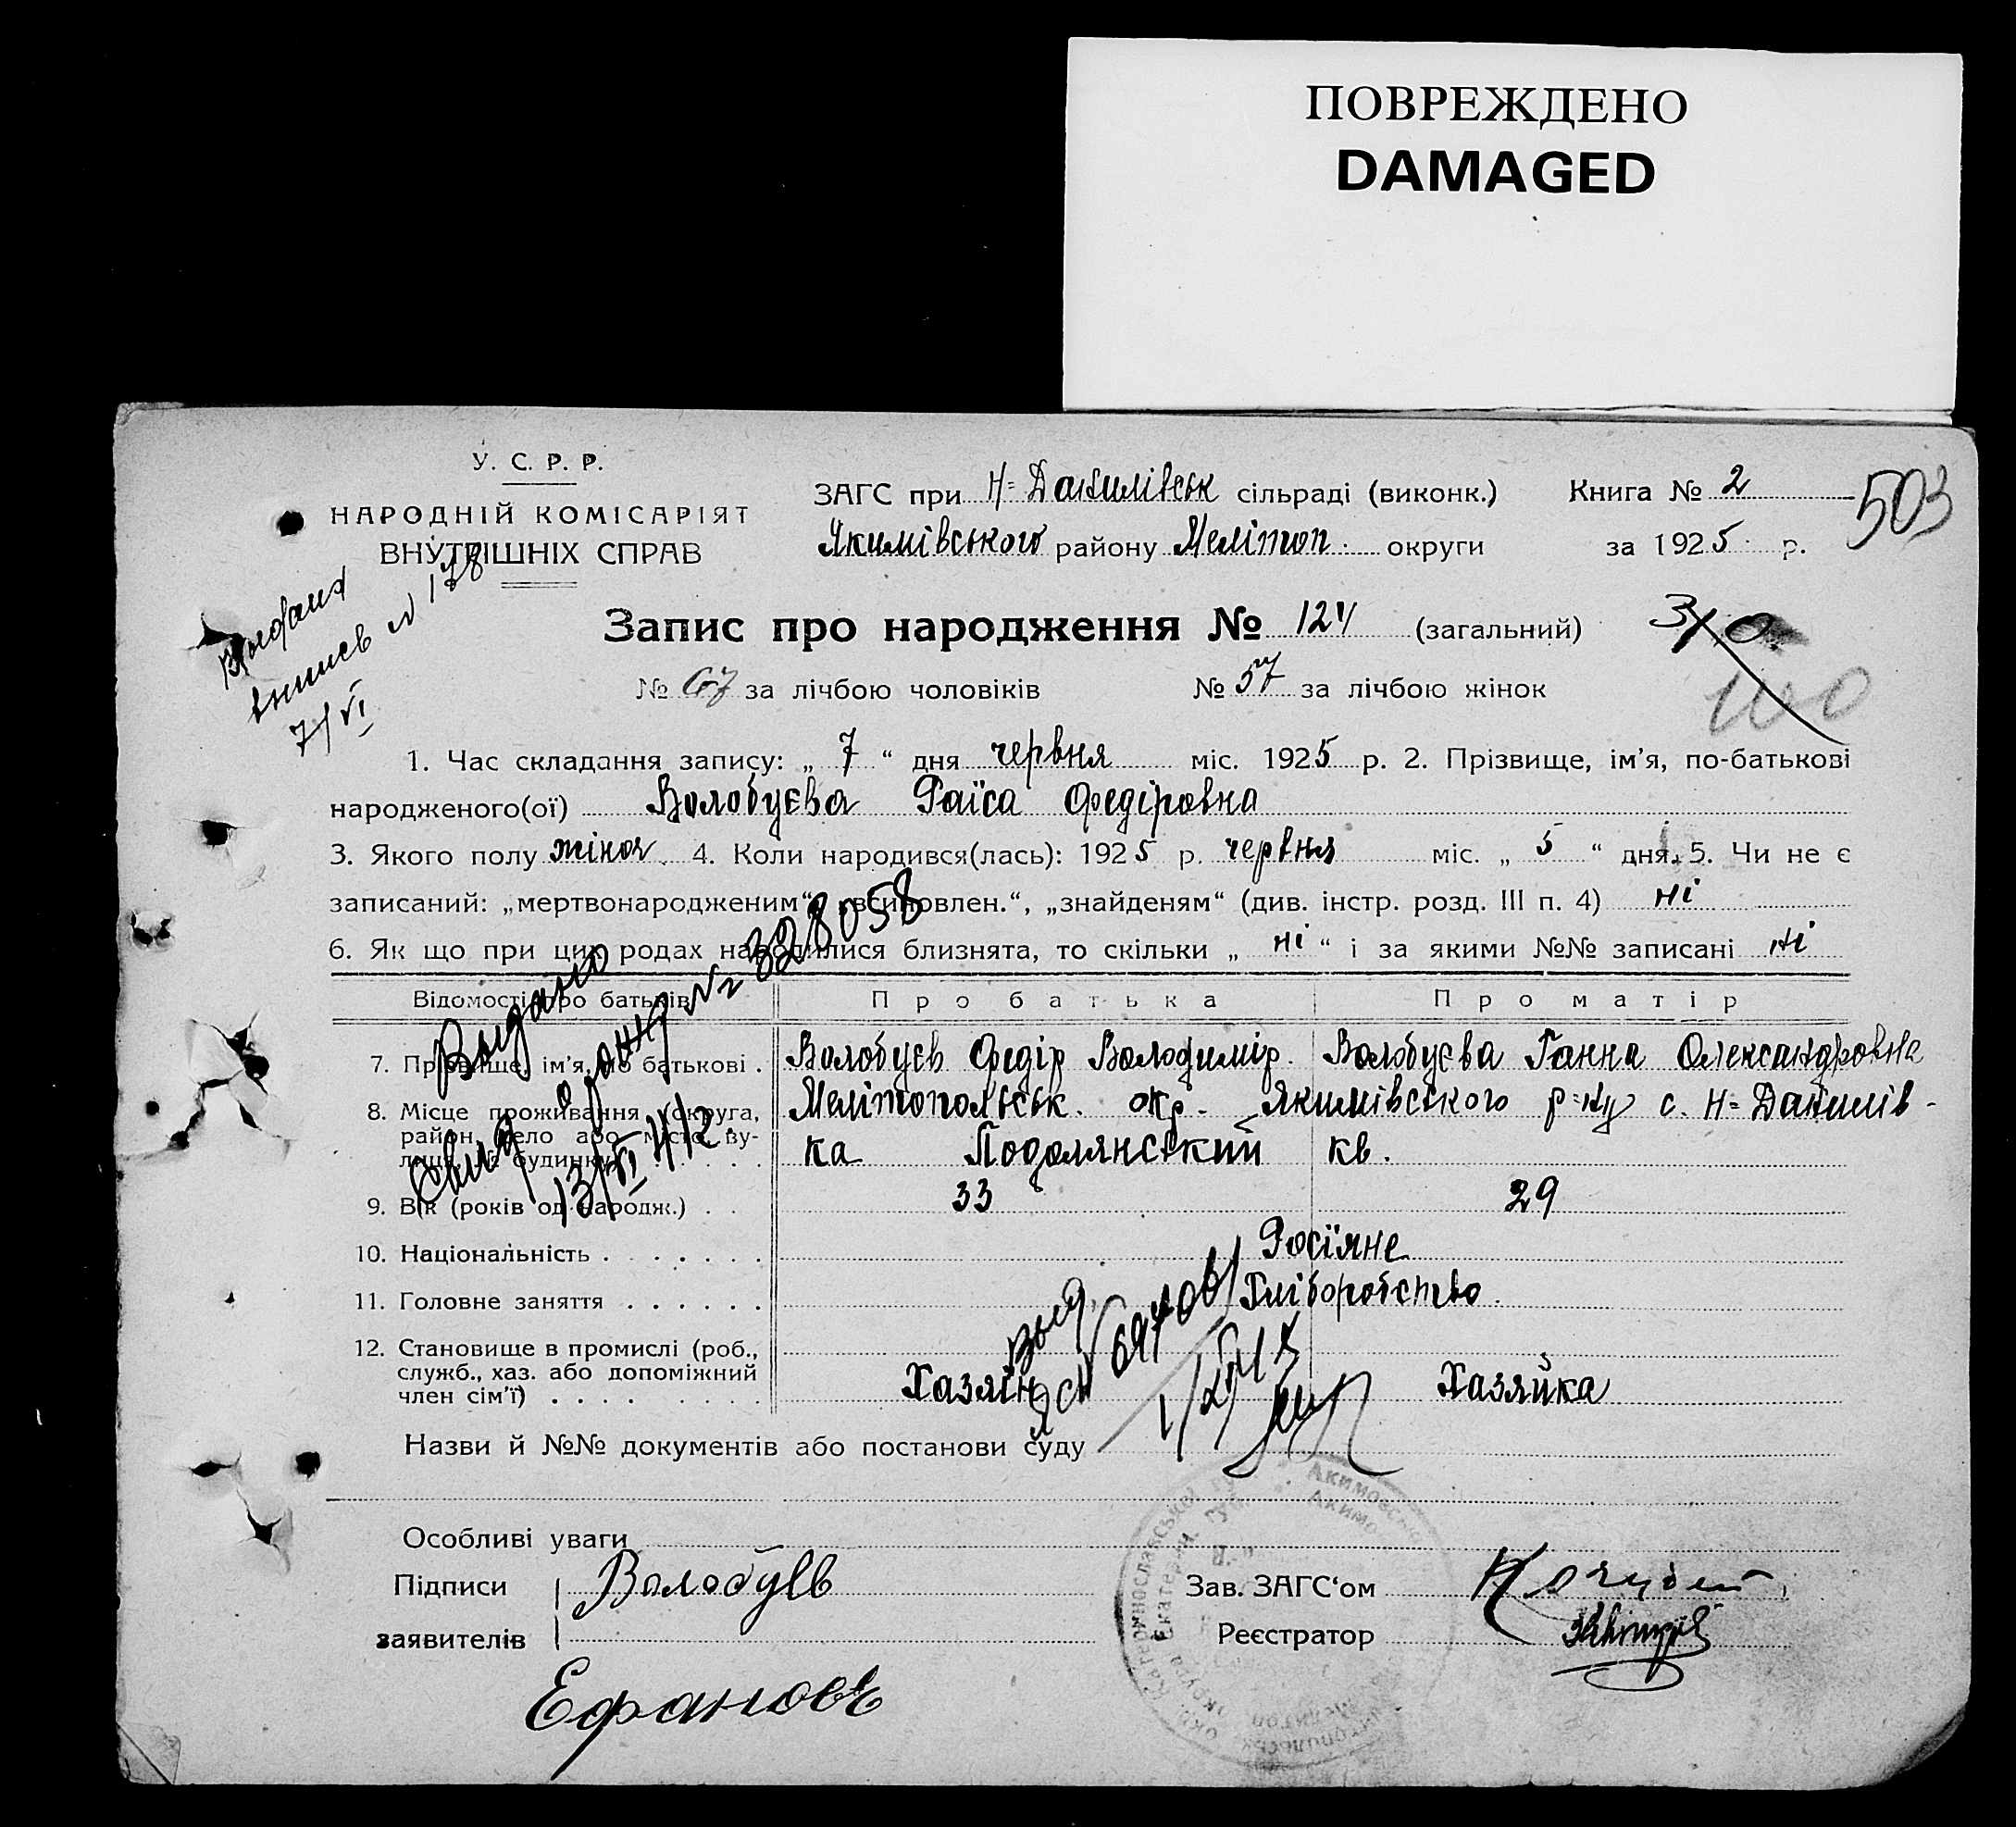 ПОВРЕЖДЕНО
DAMAGED
У. С. Р. Р.
НАРОДНІЙ КОМІСАРІЯТ
ВНУТРІШНІХ СПРАВ
ЗАГС при Н=Данилівськ сільраді (виконк.) Книга № 2
503
Якимівського району Мелітоп. округи за 1925 р.
Запис про народження № 124 (загальний)
№ 67 за лічбою чоловіків № 57 за лічбою жінок
7/VI
1. Час складання запису: „ 7 “ дня червня міс. 1925 р. 2. Прізвище, ім’я, по-батькові
народженого(ої) Волобуєва Раїса Федіровна
3. Якого полу жіноч. 4. Коли народився(лась): 1925 р. червня міс. „ 5 “ дня. 5. Чи не є
записаний: „мертвонародженим“, „всиновлен.“, „знайденям“ (див. інстр. розд. III п. 4) ні
6. Як що при цих родах народилися близнята, то скільки „ ні “ і за якими №№ записані ні
Відомості про батьків Про батька Про матір
7. Прізвище, ім’я, по батькові . Волобуєв Федір Володимір. Волобуєва Ганна Олександровна
8. Місце проживання (округа, Меліпопольськ. окр. Якимівського р=ну с. Н=Данилів-
район, село або місто, ву-
лиця, № будинку) ка Подолянський кв.
9. Вік (років од народж.) . . 33 29
10. Національність . . . . . . . Росіяне
11. Головне заняття . . . . . . Хліборобство.
12. Становище в промислі (роб.,
служб., хаз. або допоміжний
член сім’ї) . . . . Хазяїн Хазяйка
Выдано
№ 328058
Выд.
Назви й №№ документів або постанови суду
Особливі уваги
Підписи Волобуев Зав. ЗАГС‘ом
заявителів Реєстратор
Ефановъ